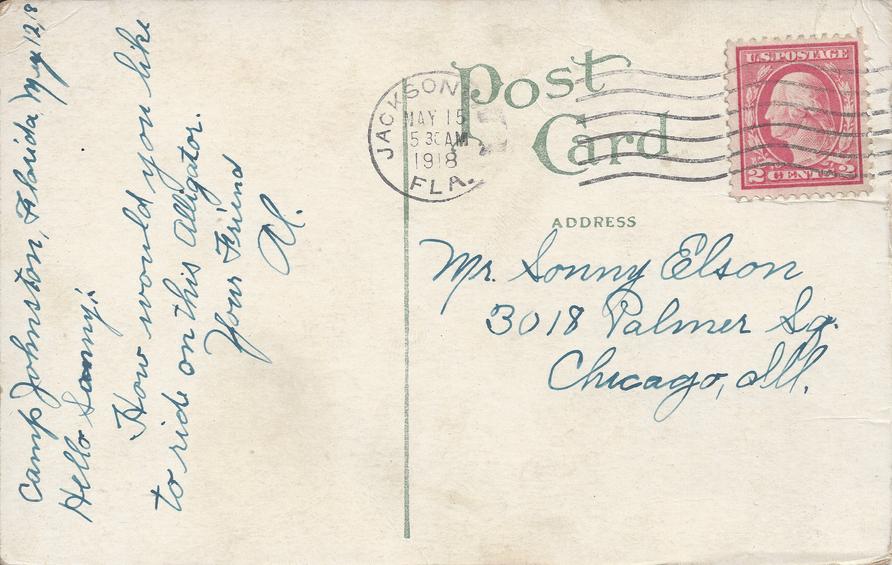 Camp Johnston, Florida, May 12, 18
Hello Sonny:
How would you like
to ride on this Alligator.
Your Friend
Al.
Post
Card
JACKSON
MAY 15
5 30 AM
1918
FLA.
U.S. POSTAGE
2 CENTS 2
ADDRESS
Mr. Sonny Elson
3018 Palmer Sq.
Chicago, Ill.